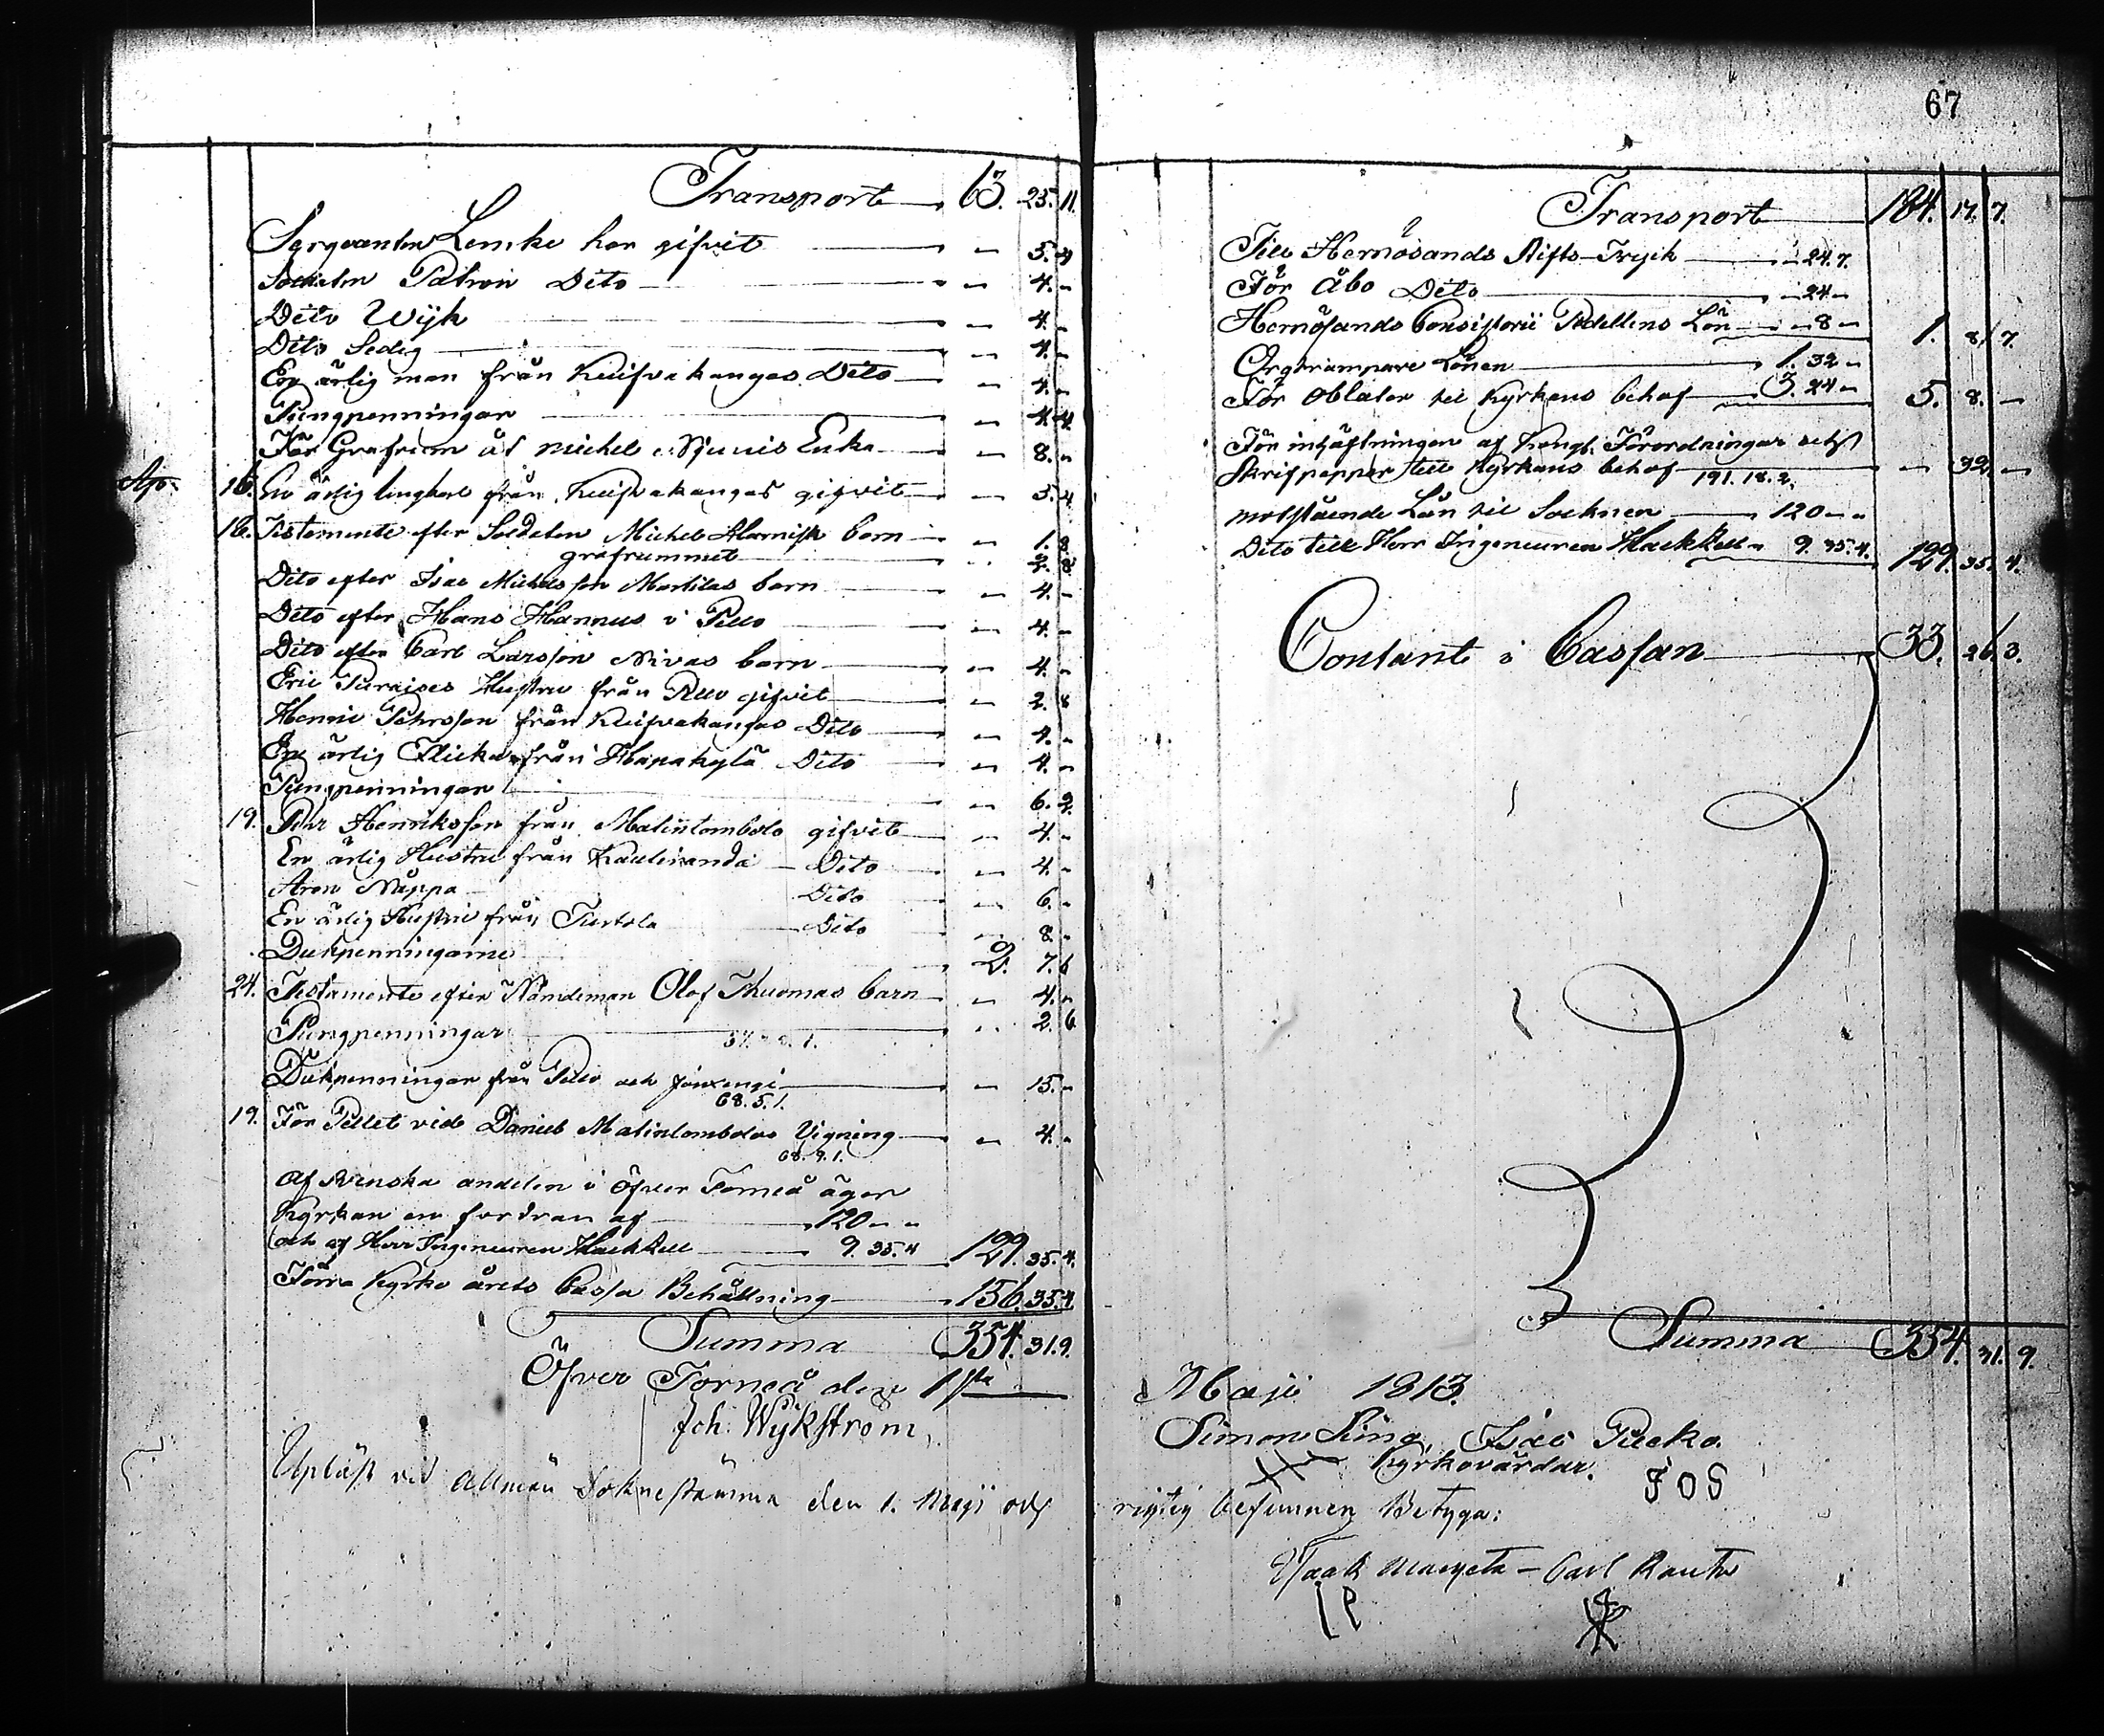 Transport 63. 25. 11.
Sergeanten Lemke har gifvit - 5. 4
Soldaten Patron Dito - 4. -
Dito Wijk - 4. -
Dito Sedig - 4. -
En ärlig man från Kuifvakangas Dito - 4. -
Pungpenningar - 4. 4.
För Grafrum åt Michel Enka - 8. -
Apr. 15. En ärlig från Kuifvakangas gifvit - 5. 4
16. Testamente efter Soldaten Michel Alarmisk barn - 1. 8.
grafrummet - 2. 8
Dito efter Isac Michelsson Martilas barn - 4. -
Dito efter Hans Hannus i Pello - 4. -
Dito efter Carl Larsson Nivas barn - 4. -
Eric Hustru från Pello gifvit - 2. 8
Henric Pehrsson från Kuifvakangas Dito - 4. -
En ärlig Flicka från Haapakylä Dito - 4. -
Pungpenningar - 6. 2.
19. Pehr Henriksson från Matintombolo gifvit - 4. -
En ärlig Hustru från Kauliranda - Dito - 4. -
Aron Näppa Dito - 6. -
En ärlig Hustru från Turtola Dito - 8. -
Dukpenningarne 2. 7. 6
24. Testamente efter Nämdeman Olof Thuomas barn - 4. -
Pungpenningar - 2. 6
Dukpenningar från Pello och Jouxengi - 15. -
68. 5. 1.
19. För Pellet vid Daniel Matintombolos Vigning - 4. -
68. 9. 1.
Af Svenska andelen i Öfver Torneå äger
Kyrkan en fordran af 120 - -
och af Herr Ingeneuren Hackzell 9. 35. 4 129. 35. 4.
Förra Kyrko årets Cassa Behållning 156. 35. 4
Summa 354. 31. 9.
Öfver Torneå den 1sta
Joh. Wijkström,
Upläst vid Allmän Soknestämma den 1. Maji och
67
Transport 184. 17. 7.
Till Hernösands Stifts-Tryck - 24. 7.
För Åbo Dito - 24 -
Hernösands Consistorii Pedellens Lön - 8 - 1. 8. 7.
Orgtrampare Lönen 1. 32 -
För Oblater til Kyrkans behof 3. 24 - 5. 8. -
För inhäftningen af Kongl. Förordningar och
Skrifpapper till Kyrkans behof - 32 -
191. 18. 2.
motstående Lån til Socknen 120 - -
Dito till Herr Ingeneuren Hackzell 9. 35. 4. 129. 35. 4.
Contant i Cassan 33. 26. 3.
Summa 354. 31. 9.
Maji 1813.
Simon King, Isac Pucko.
Kyrkovärdar.
IOS
rigtig befunnen Betyga:
Isaak - Carl Rautio
IP